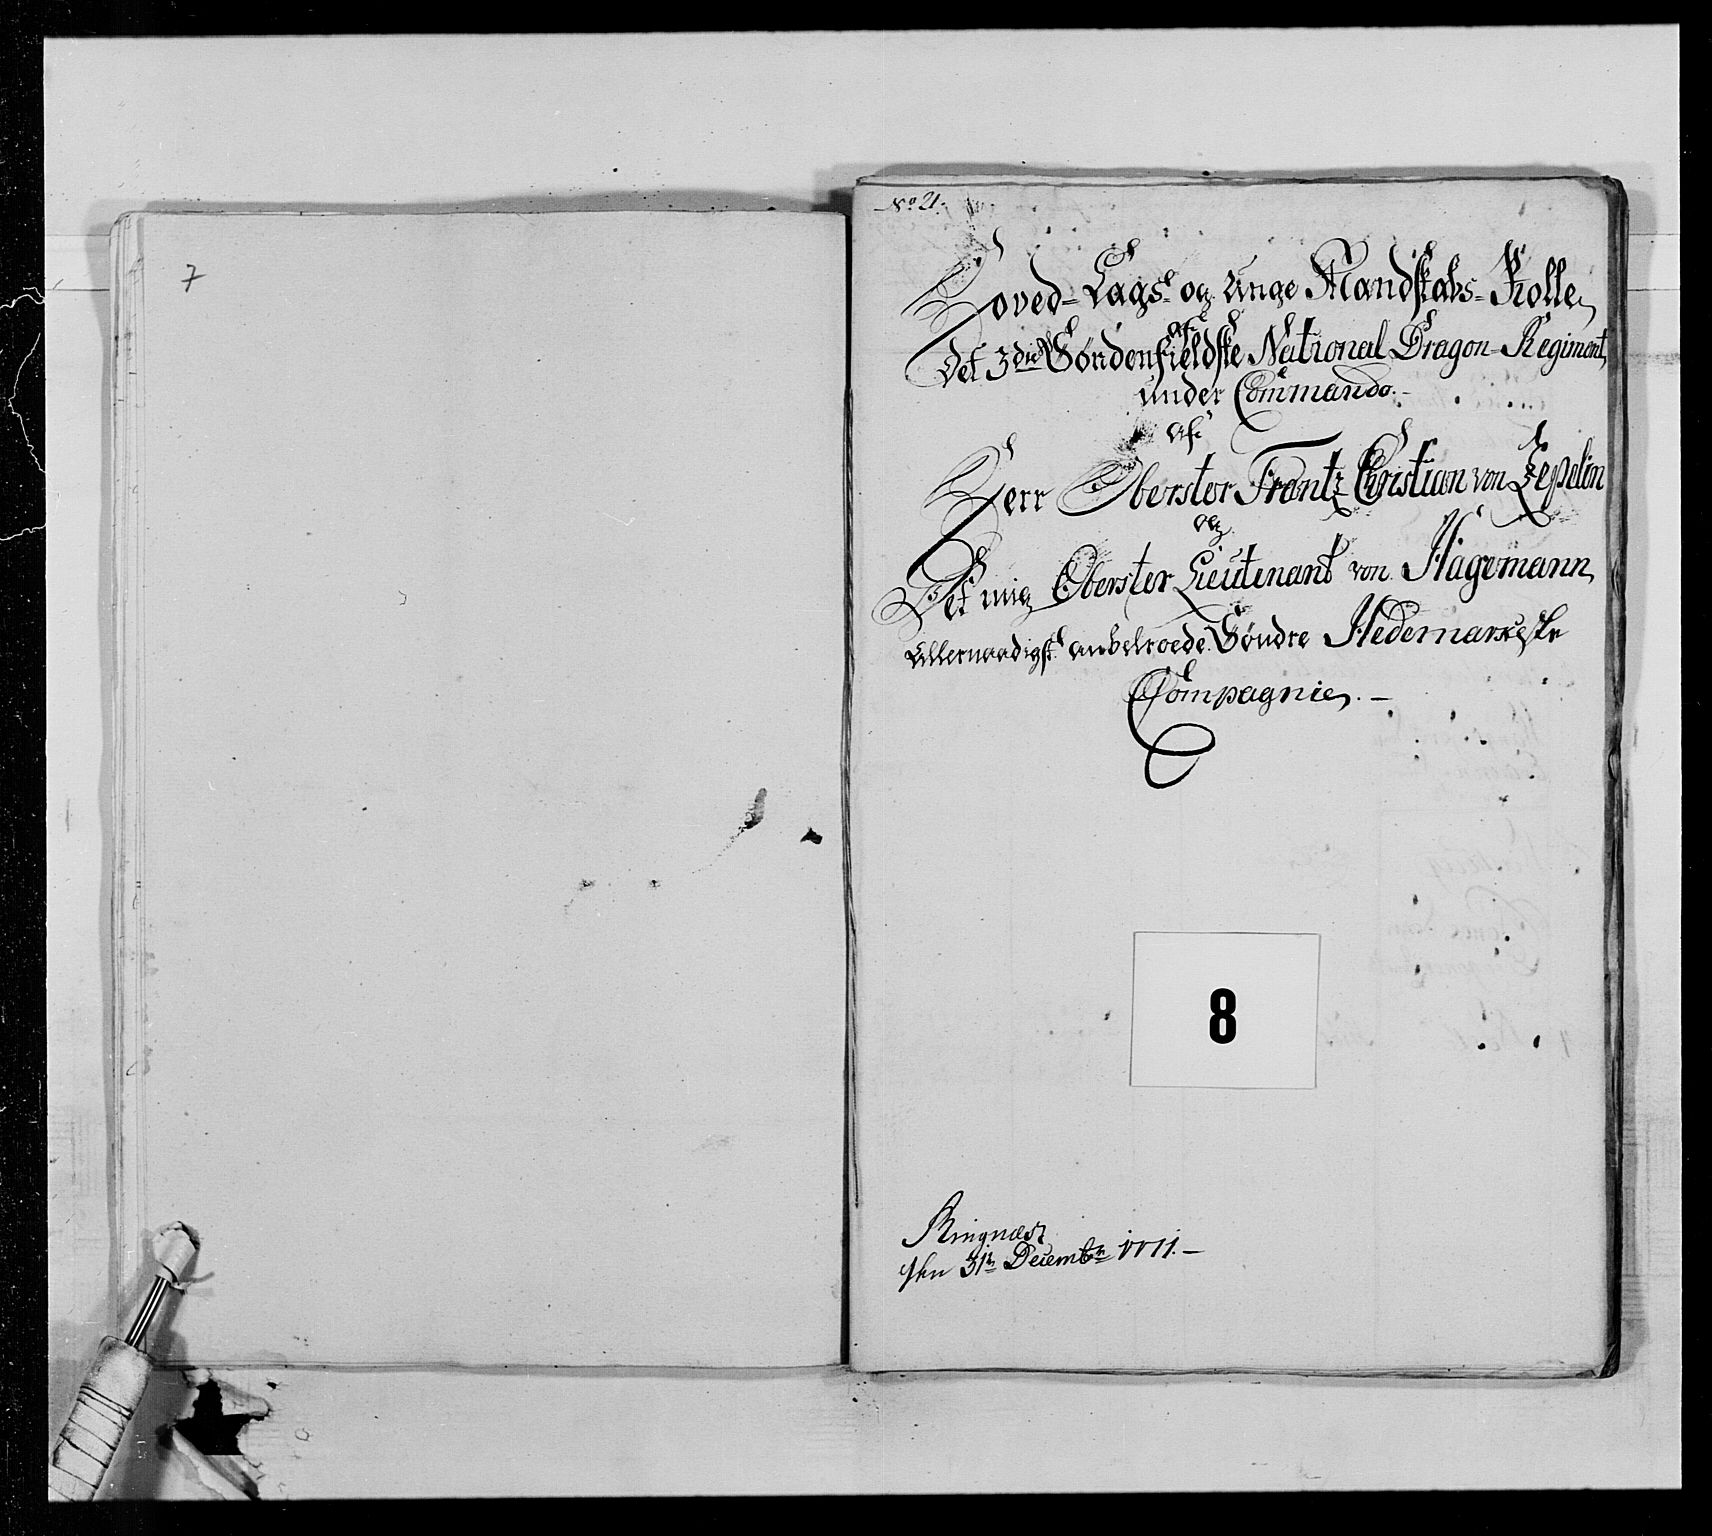 7
No 21.
Hoved- Lægs- og Unge Mandskabs- Rolle,
af
Det 3die Søndenfieldske National Dragon- Regiment,
under Commando.-
af
Herr Oberster Frantz Christian von Zepelin
og
Det mig Oberster Lieutenant von Hagemann,
Allernaadigst anbetroede Søndre Hedemarkeske
Compagnie. -
8
Ringnæs
den 31te Decembr 1771. -